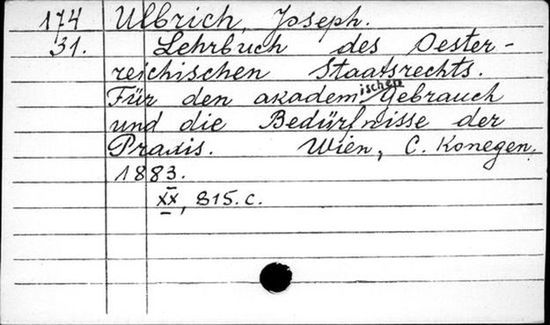 174 Ulbrich, Joseph.
31. Lehrbuch des Oester-
reichischen Staatsrechts.
Für den akademischen Gebrauch
und die Bedürfnisse der
Praxis. Wien, C. Konegen.
1883.
XX, 815. c.